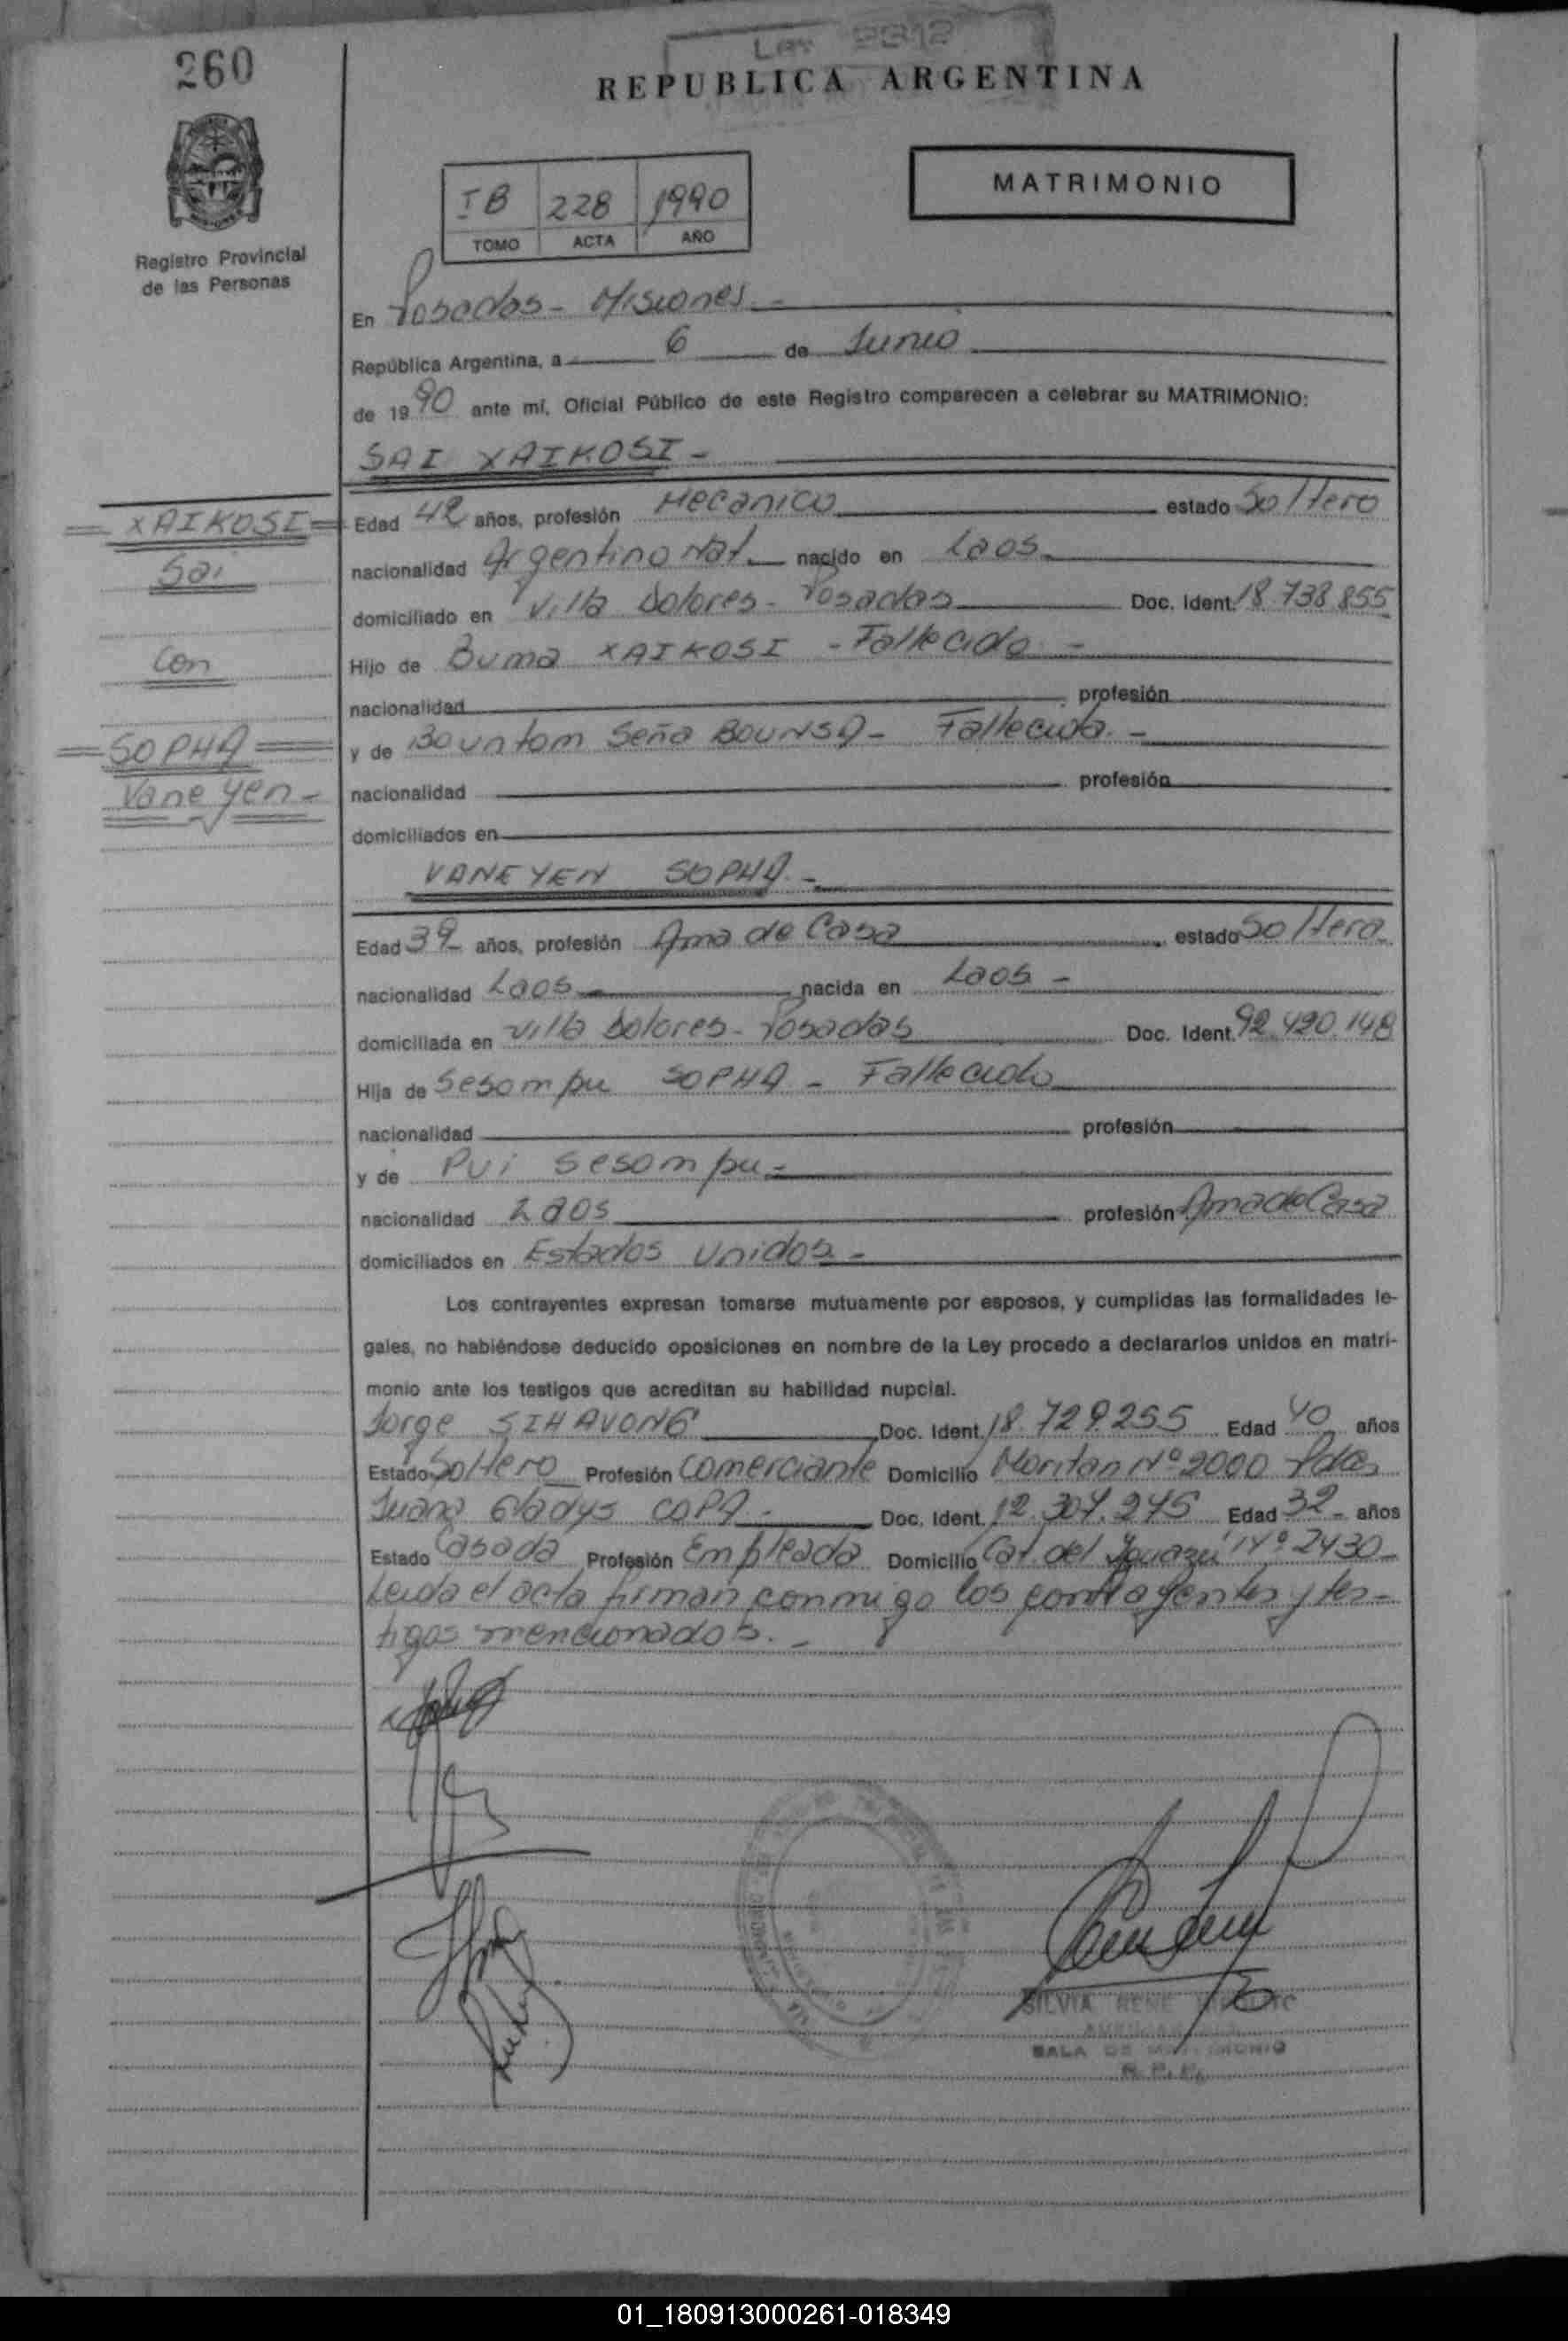 260
Ley 2312
REPUBLICA ARGENTINA
MATRIMONIO
I B 228 1990
TOMO ACTA AÑO
Registro Provincial
de las Personas
En Posadas - Misiones -
República Argentina, a 6 de Junio
de 1990 ante mí, Oficial Público de este Registro comparecen a celebrar su MATRIMONIO:
SAI XAIKOSI -
XAIKOSI
Sai
con
SOPHA
Vane Yen -
Edad 42 años, profesión Mecanico estado Soltero
nacionalidad Argentino Nat. nacido en Laos
domiciliado en Villa Dolores - Posadas Doc. Ident. 18.738.855
Hijo de Buma XAIKOSI - Fallecido -
nacionalidad profesión
y de Bountom Seña BOUNSA - Fallecida. -
nacionalidad profesión
domiciliados en
VANE YEN SOPHA. -
Edad 39 años, profesión Ama de Casa estado Soltera
nacionalidad Laos nacida en Laos -
domiciliada en Villa Dolores - Posadas Doc. Ident. 92.490.148
Hija de Sesompu SOPHA - Fallecido
nacionalidad profesión
y de Pui Sesompu -
nacionalidad Laos profesión Ama de Casa
domiciliados en Estados Unidos. -
Los contrayentes expresan tomarse mutuamente por esposos, y cumplidas las formalidades le-
gales, no habiéndose deducido oposiciones en nombre de la Ley procedo a declararlos unidos en matri-
monio ante los testigos que acreditan su habilidad nupcial.
Jorge SIHAVONG Doc. Ident. 18.729.255 Edad 40 años
Estado Soltero Profesión Comerciante Domicilio Nº 2000 Pdas
Juana Gladys COPA - Doc. Ident. 12.307.245 Edad 32 años
Estado Casada Profesión Empleada Domicilio Cat. del Iguazú Nº 2430
Leida el acta firman conmigo los contrayentes y tes-
tigos mencionados. -
SILVIA RENE
SALA DE MATRIMONIO
R. P. P.
01_180913000261-018349